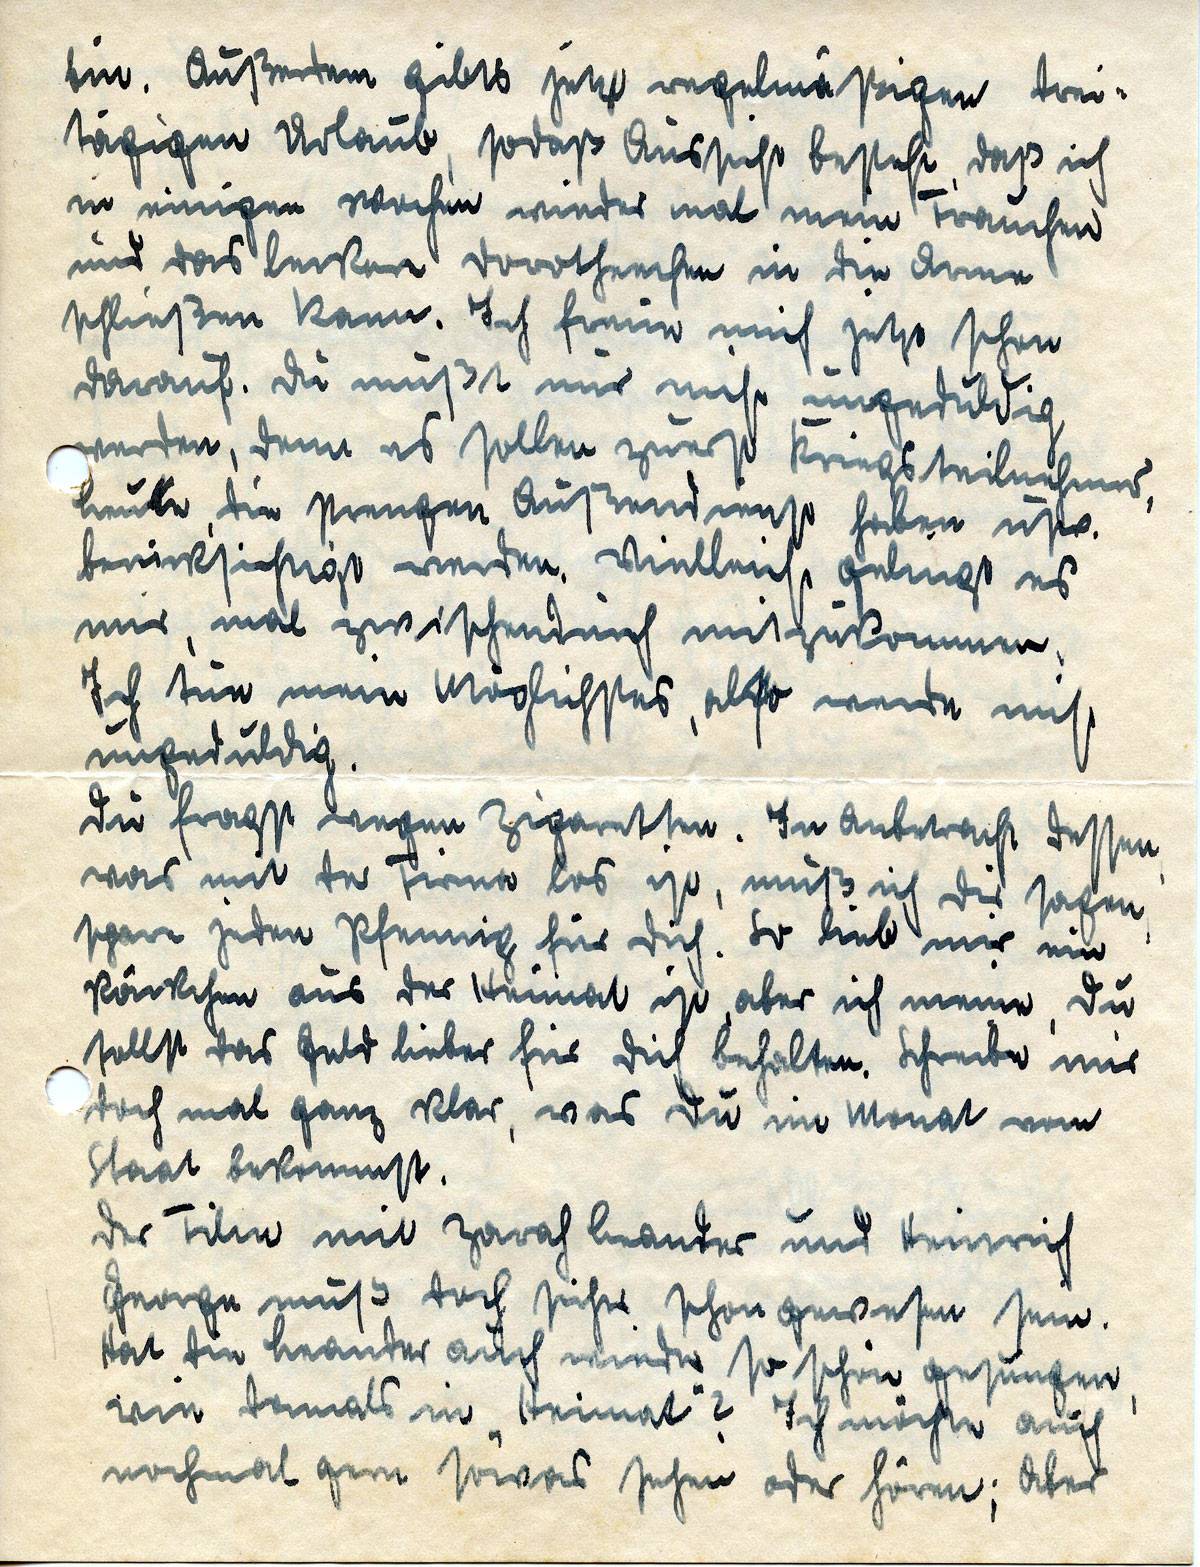 bin. Außerdem gibts jetzt regelmäßigen drei-
tägigen Urlaub, sodaß Aussicht besteht, daß ich
in einigen Wochen wieder mal mein Frauchen
und das leckere Dorotheechen in die Arme
schließen kann. Ich freue mich jetzt schon
darauf. Du mußt nur nicht ungeduldig
werden, denn es sollen zuerst Kriegsteilnehmer,
Leute, die strengen Außendienst haben usw.
berücksichtigt werden. Vielleicht gelingt es
mir, mal zwischendurch mitzukommen.
Ich tue mein Möglichstes, also werde nicht
ungeduldig.
Du fragst wegen Zigaretten. In Anbetracht dessen,
was mit der Firma los ist, muß ich Dir sagen,
spare jeden Pfennig für Dich. So lieb mir ein
Päckchen aus der Heimat ist, aber ich meine, Du
sollst das Geld lieber für Dich behalten. Schreibe mir
doch mal ganz klar, was Du im Monat vom
Staat bekommst.
Der Film mit Zarah Leander und Heinrich
George muß doch sicher schon gewesen sein.
Hat die Leander auch wieder so schön gesungen,
wie damals in „Heimat"? Ich möchte auch
nochmal gern sowas sehen oder hören; Aber